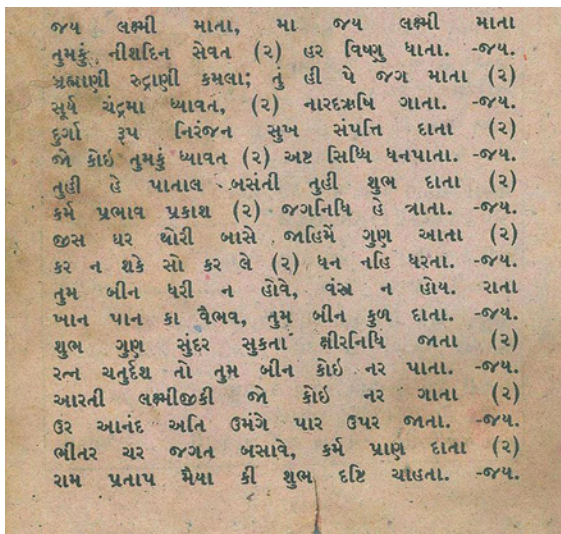 જય લક્ષ્મી માતા, મા જય લક્ષ્મી માતા
તુમકું નીશદિન સેવત (૨) હર વિષ્ણુ ધાતા. -જય.
બ્રહ્માણી રુદ્રાણી કમલા; તું હી પે જગ માતા (૨)
સૂર્ય ચંદ્રમા ધ્યાવત, (૨) નારદઋષિ ગાતા. -જય.
દુર્ગા રૂપ નિરંજન સુખ સંપત્તિ દાતા (૨)
જો કોઇ તુમકું ધ્યાવત (૨) અષ્ટ સિધ્ધિ ધનપાતા. -જય.
તુહી હે પાતાલ બસંતી તુહી શુભ દાતા (૨)
કર્મ પ્રભાવ પ્રકાશ (૨) જગનિધિ હે ત્રાતા. -જય.
જીસ ઘર થોરી બાસે જાહિમેં ગુણ આતા (૨)
કર ન શકે સો કર લે (૨) ધન નહિ ધરતા. -જય.
તુમ બીન ધરી ન હોવે, વંસ્ત્ર ન હોય. રાતા
ખાન પાન કા વૈભવ, તુમ બીન કુળ દાતા. -જય.
શુભ ગુણ સુંદર સુકતા ક્ષીરનિધિ જાતા (૨)
રત્ન ચતુર્દશ તો તુમ બીન કોઇ નર પાતા. -જય.
આરતી લક્ષ્મીજીકી જો કોઇ નર ગાતા (૨)
ઉર આનંદ અતિ ઉમંગે પાર ઉપર જાતા. -જય.
ભીતર ચર જગત બસાવે, કર્મ પ્રાણ દાતા (૨)
રામ પ્રતાપ મૈયા કી શુભ દષ્ટિ ચાહતા. -જય.